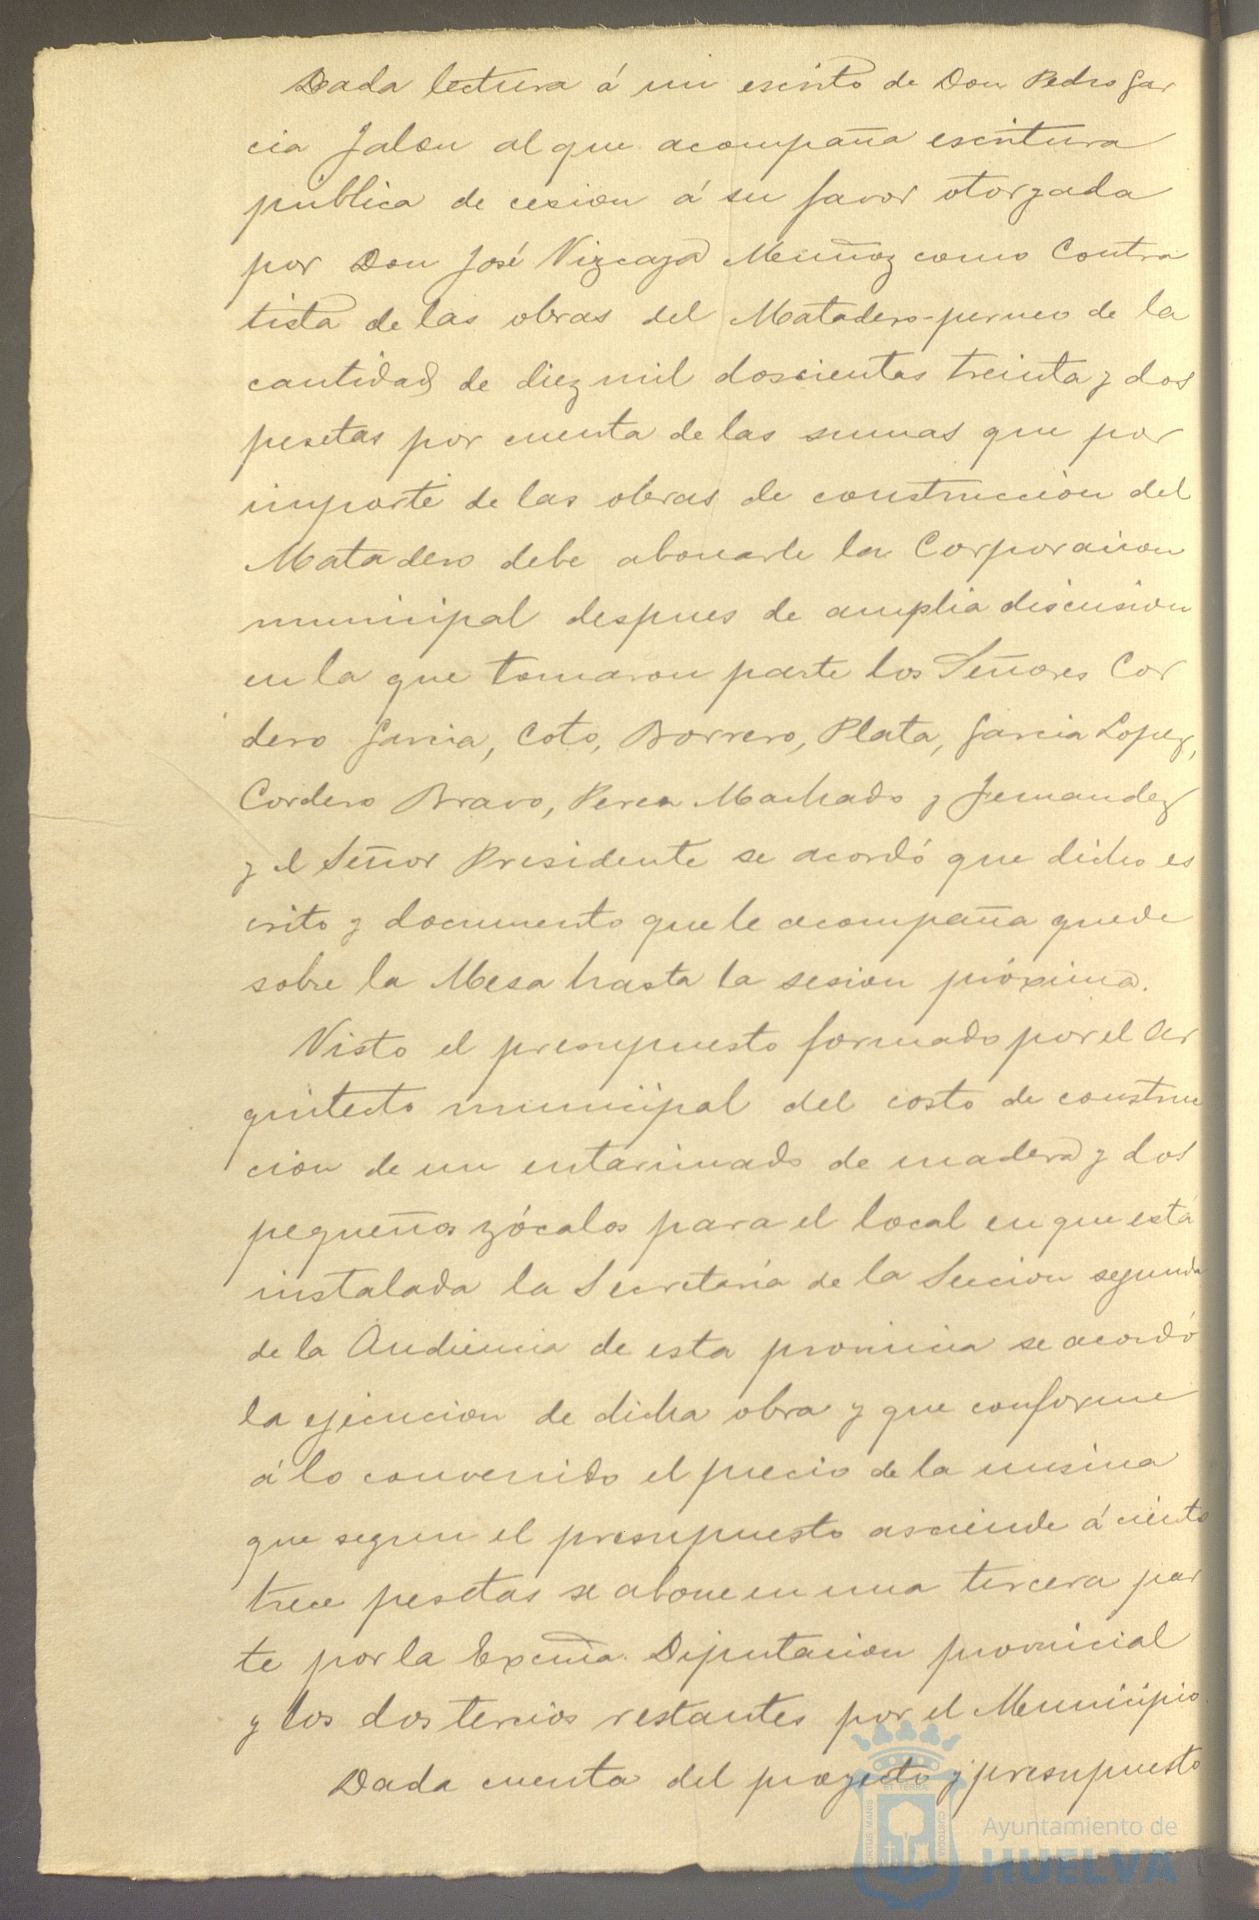 Dada lectura á un escrito de Don Pedro Gar
cia Jalon al que acompaña escritura
pública de cesion á su favor otorgada
por Don José Vizcaya Muñoz como Contra
tista de las obras del Matadero-perneo de la
cantidad de diez mil doscientas treinta y dos
pesetas por cuenta de las sumas que por
importe de las obras de construccion del
Matadero debe abonarle la Corporacion
municipal despues de amplia discusion
en la que tomaron parte los Señores Cor
dero Garcia, Coto, Borrero, Plata, Garcia Lopez,
Cordero Bravo, Perea Machado y Fernandez
y el Señor Presidente se acordó que dicho es
crito y documento que le acompaña quede
sobre la Mesa hasta la sesion próxima.
Visto el presupuesto formado por el Ar
quitecto municipal del costo de construc
cion de un entarimado de madera y dos
pequeños zócalos para el local en que está
instalada la Secretaría de la Seccion segunda
de la Audiencia de esta provincia se acordó
la ejecucion de dicha obra y que conforme
á lo convenido el precio de la misma
que segun el presupuesto asciende á ciento
trece pesetas se abone en una tercera par
te por la Excma. Diputacion provincial
y los dos tercios restantes por el Municipio.
Dada cuenta del proyecto y presupuesto
Ayuntamiento de
HUELVA